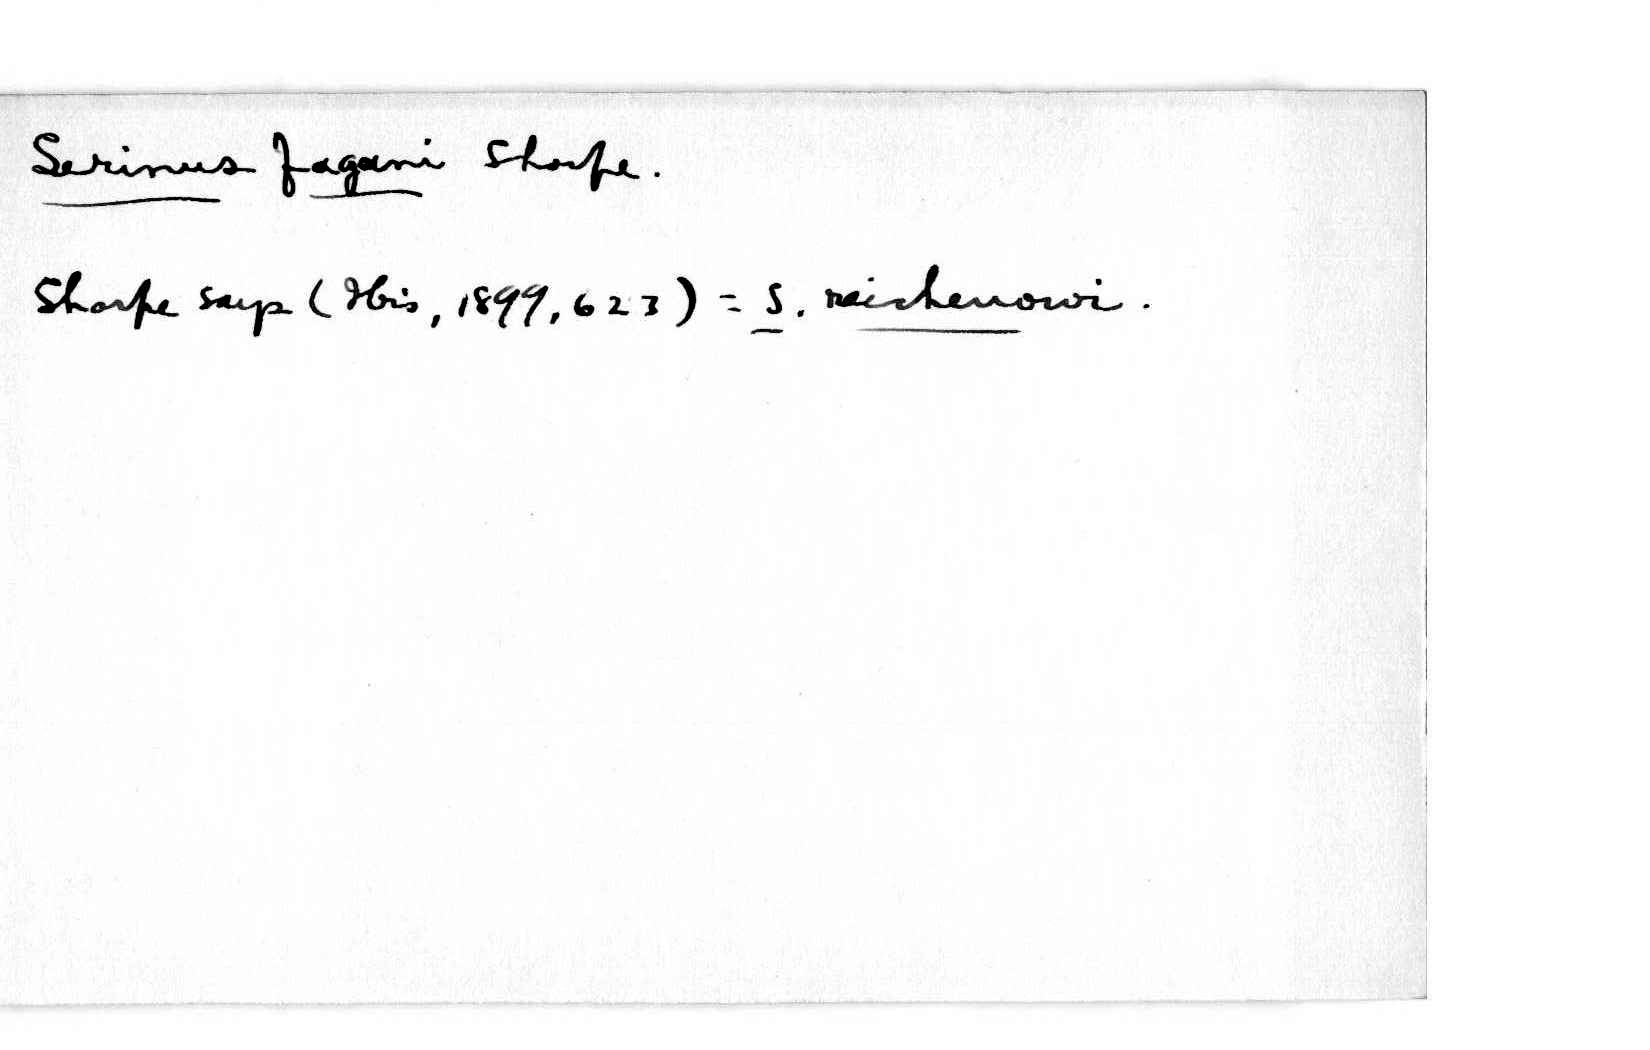 Serinus fagani Sharpe.
Sharpe says (Ibis, 1899, 623) = S. reichenowi.